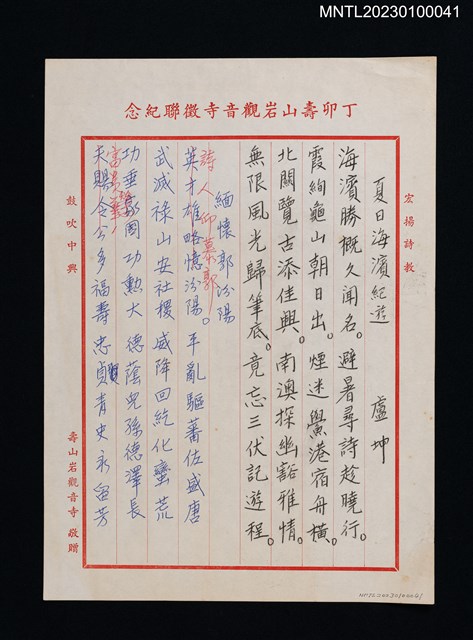 MNTL20230100041
丁卯壽山岩觀音寺徵聯紀念
宏揚詩教
夏日海濱紀遊 盧坤
海濱勝概久聞名。避暑尋詩趁曉行。
霞絢龜山朝日出。煙迷鱟港宿舟橫。
北關覽古添佳興。南澳探幽豁雅情。
無限風光歸筆底。竟忘三伏記遊程。
緬懷郭汾陽
詩人仰慕郭
英才雄略憶汾陽。平亂驅蕃佐盛唐
武滅祿山安社稷 威降回紇化蠻荒
功垂 國功勲大 德蔭兒孫德澤長
富貴
天賜令公多福壽 忠貞 青史永留芳
鼓吹中興
壽山岩觀音寺 敬贈
MNTL20230100041